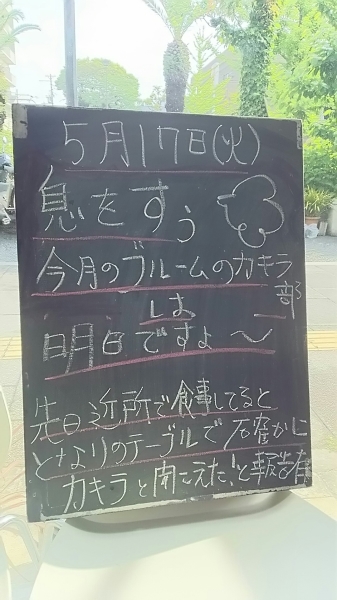 5月17日(火)
息をすう
今月のブルームのカキラ部
は
明日ですよ〜
先日近所で食事してると
となりのテーブルで石窪かに
カキラと聞こえた!と報告有